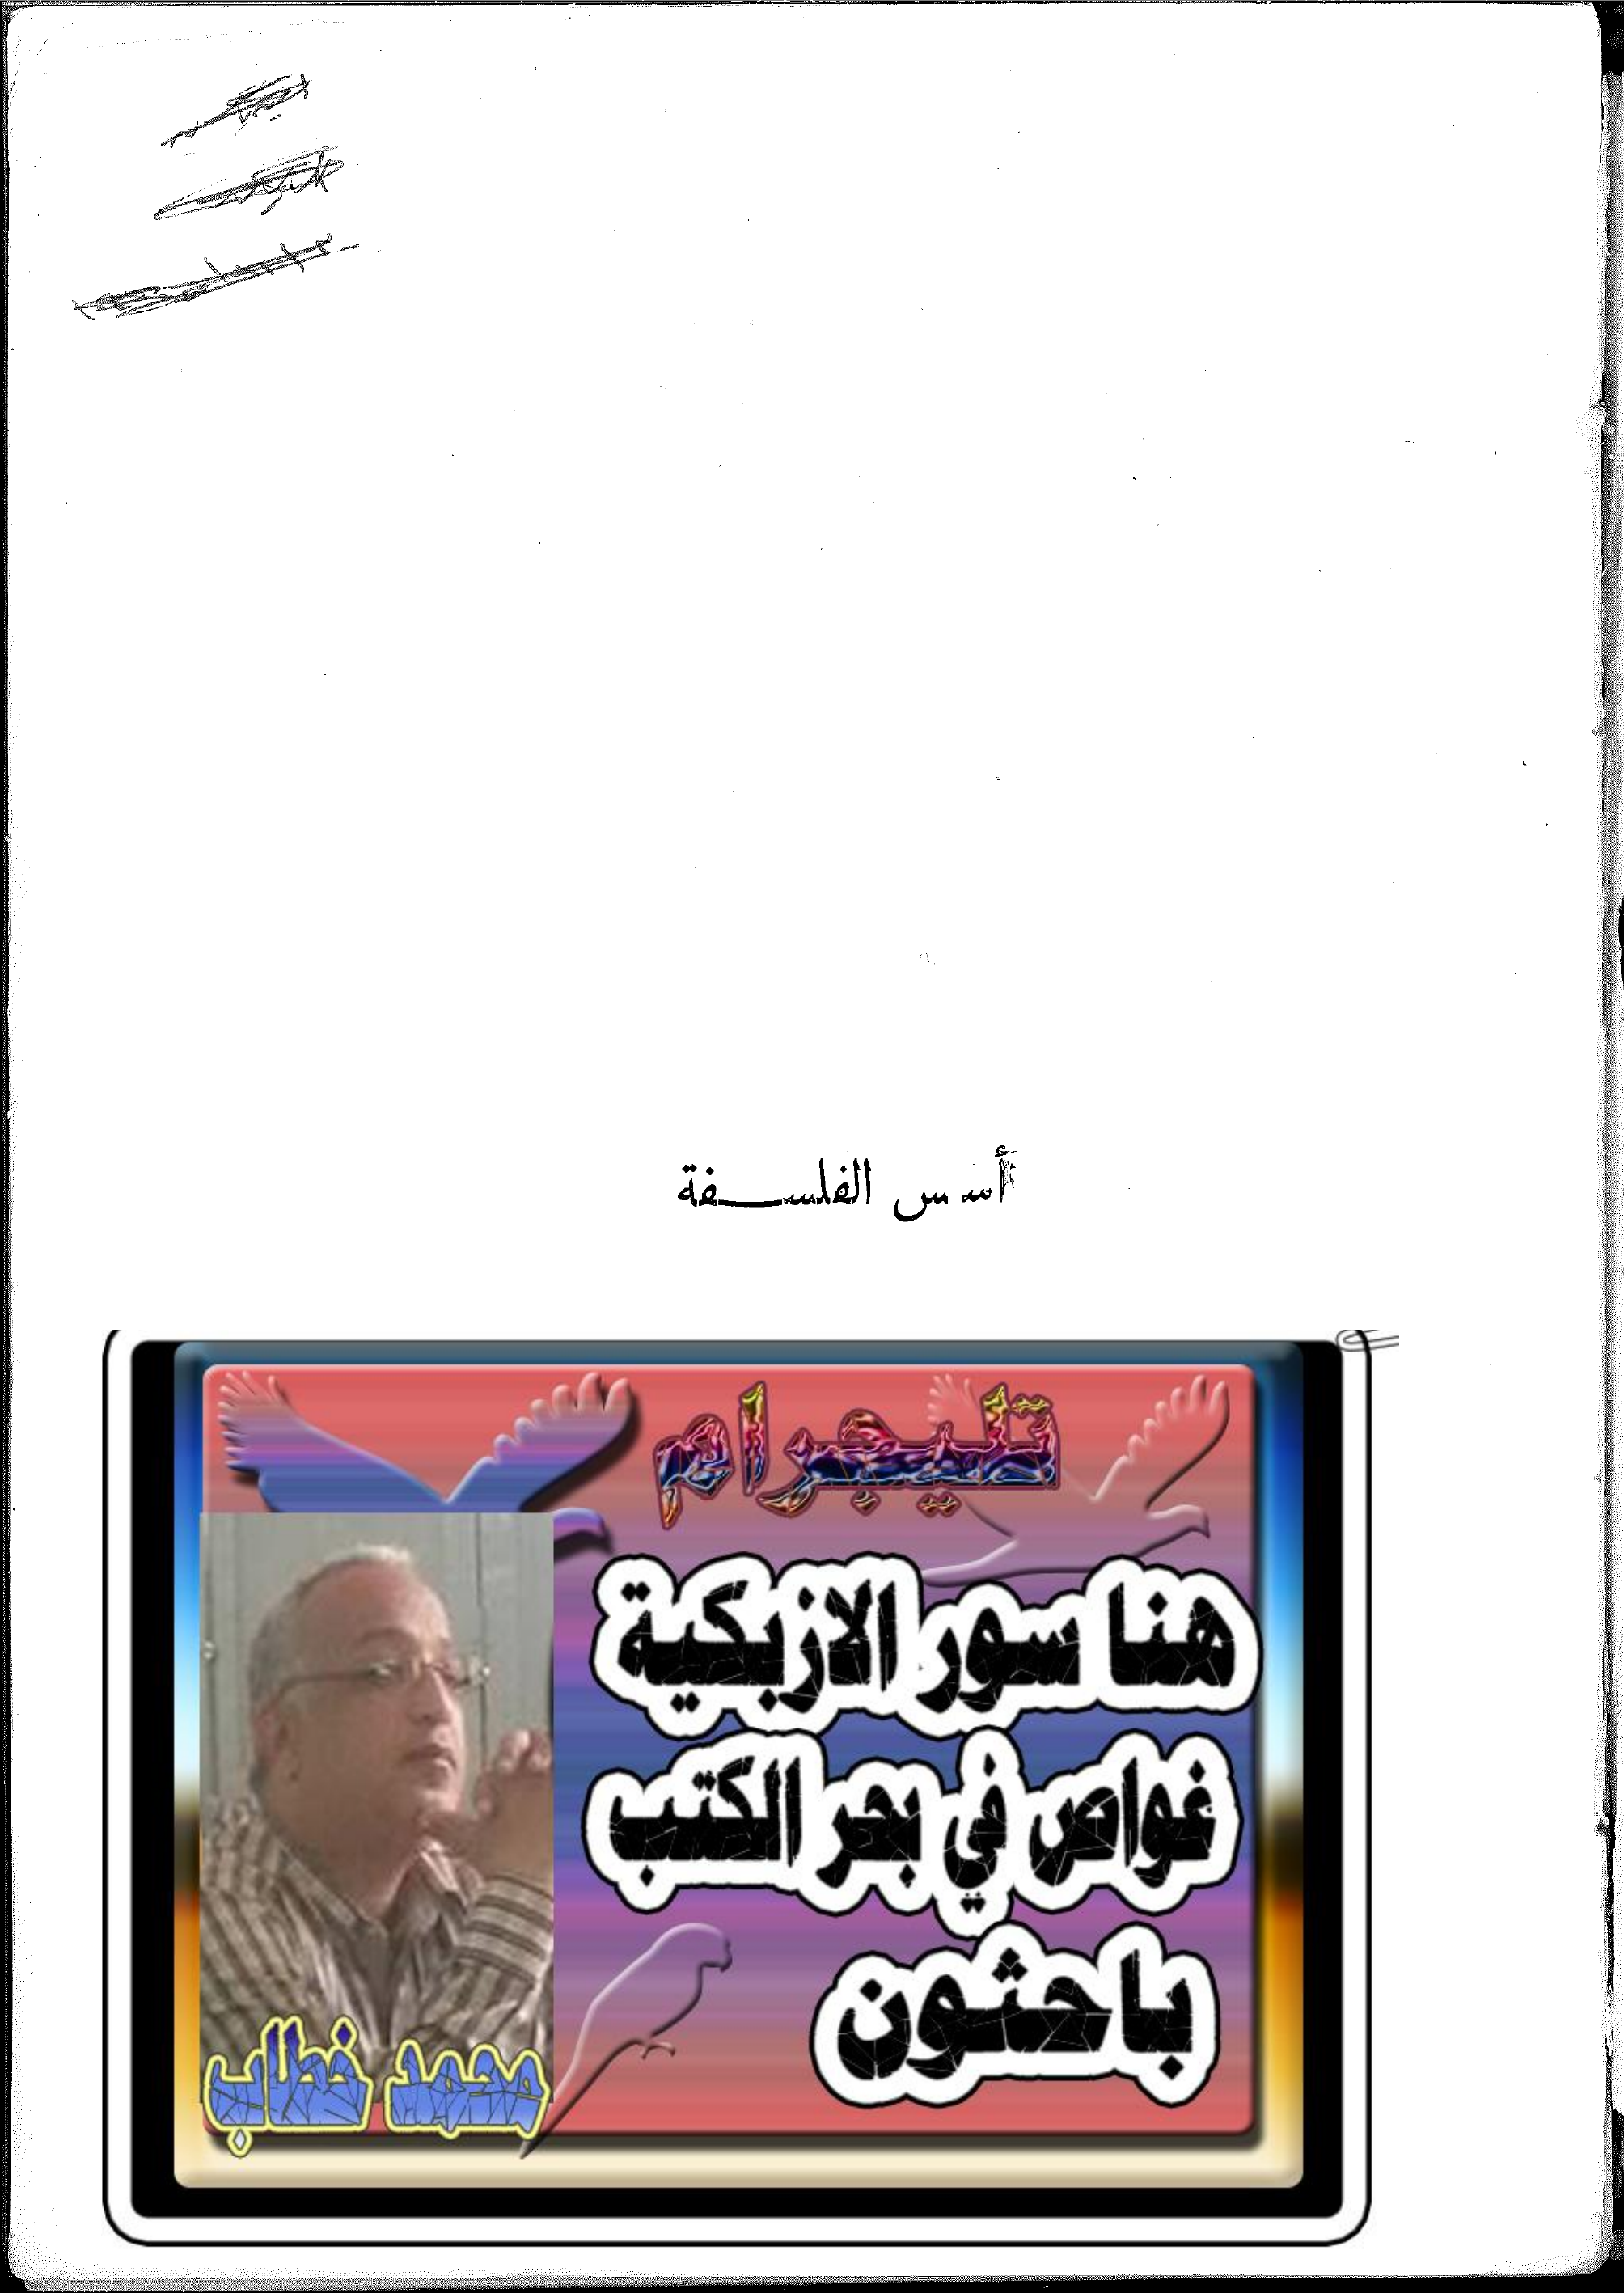 أسس الفلسفة
تليجرام
هنا سور الازبكية
غواص في بحر الكتب
باحثون
محمد خطاب